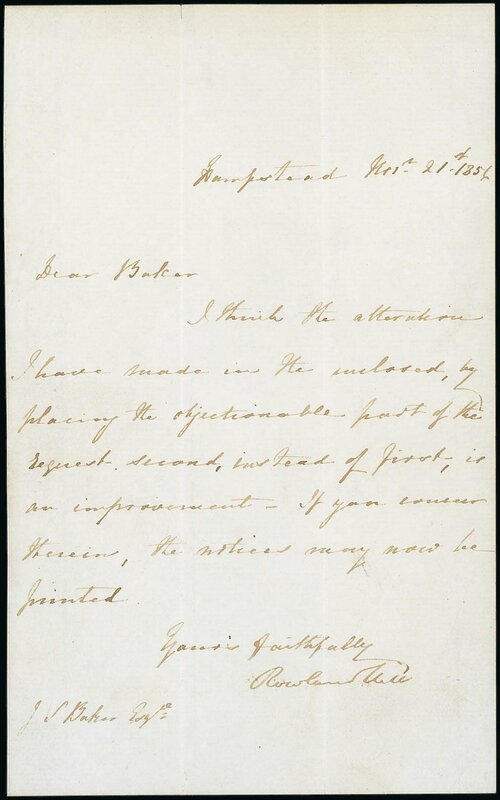 Hampstead Novr. 21st. 1856
Dear Baker
I think the alteration
I have made in the inclosed, by
placing the objectionable part of the
request second, instead of first, is
an improvement - If you concur
therein, the notices may now be
printed
Yours faithfully
Rowland Hill
J S Baker Esqre.